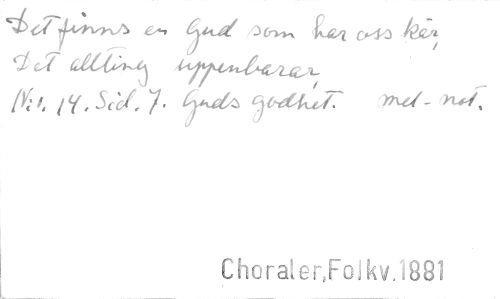 Det finns en Gud som har oss kär,
Det allting uppenbarar,
N:r. 14. Sid. 7. Guds godhet. mel-not.
Choraler,Folkv.1881